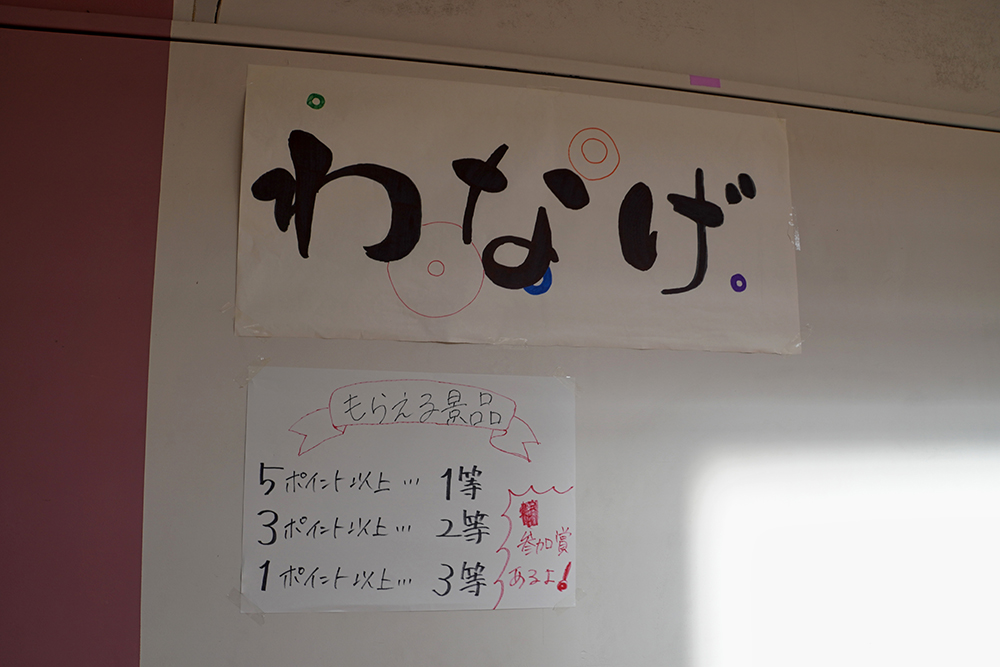 わなげ
もらえる景品
5ポイント以上… 1等
3ポイント以上… 2等
1ポイント以上… 3等
参加賞
あるよ!